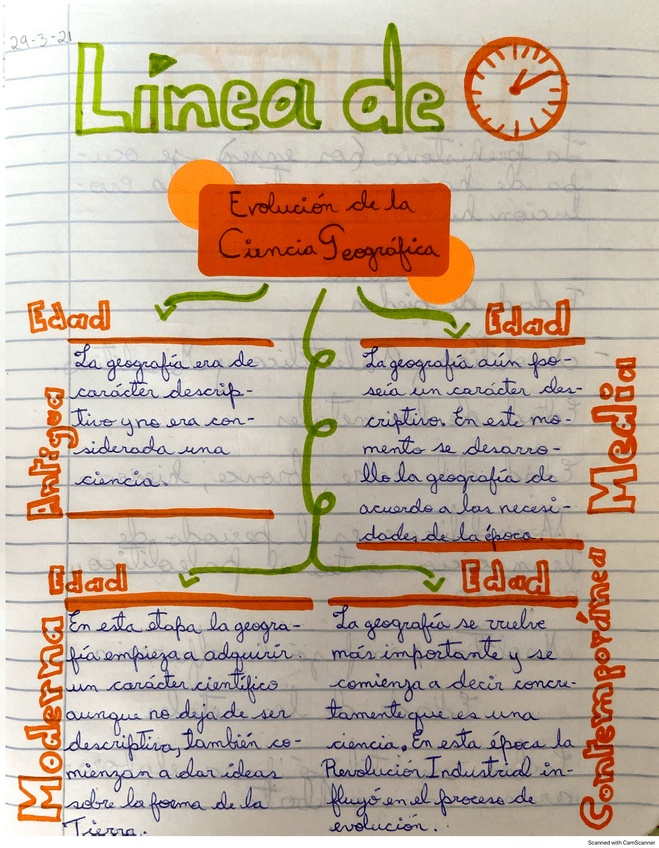 29-3-21
Línea de
Evolución de la
Ciencia Geográfica
Edad
Antigua
La geografía era de
carácter descrip-
tivo y no era con-
siderada una
ciencia.
Edad
Media
La geografía aún po-
seía un carácter des-
criptivo. En este mo-
mento se desarro-
llo la geografía de
acuerdo a las necesi-
dades de la época.
Edad
Moderna
En esta etapa la geogra-
fía empieza a adquirir
un carácter científico
aunque no deja de ser
descriptiva, también co-
mienzan a dar ideas
sobre la forma de la
Tierra.
Edad
Contemporánea
La geografía se vuelve
más importante y se
comienza a decir concre-
tamente que es una
ciencia. En esta época la
Revolución Industrial in-
fluyó en el proceso de
evolución.
Scanned with CamScanner